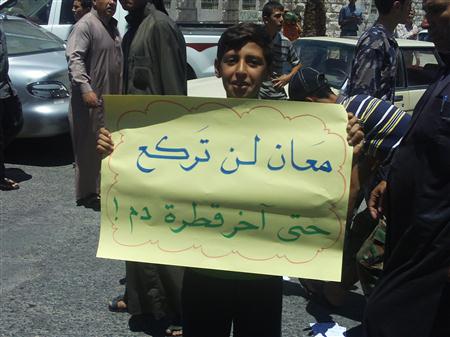 معان لن تَركع
حتى آخر قطرة دم !